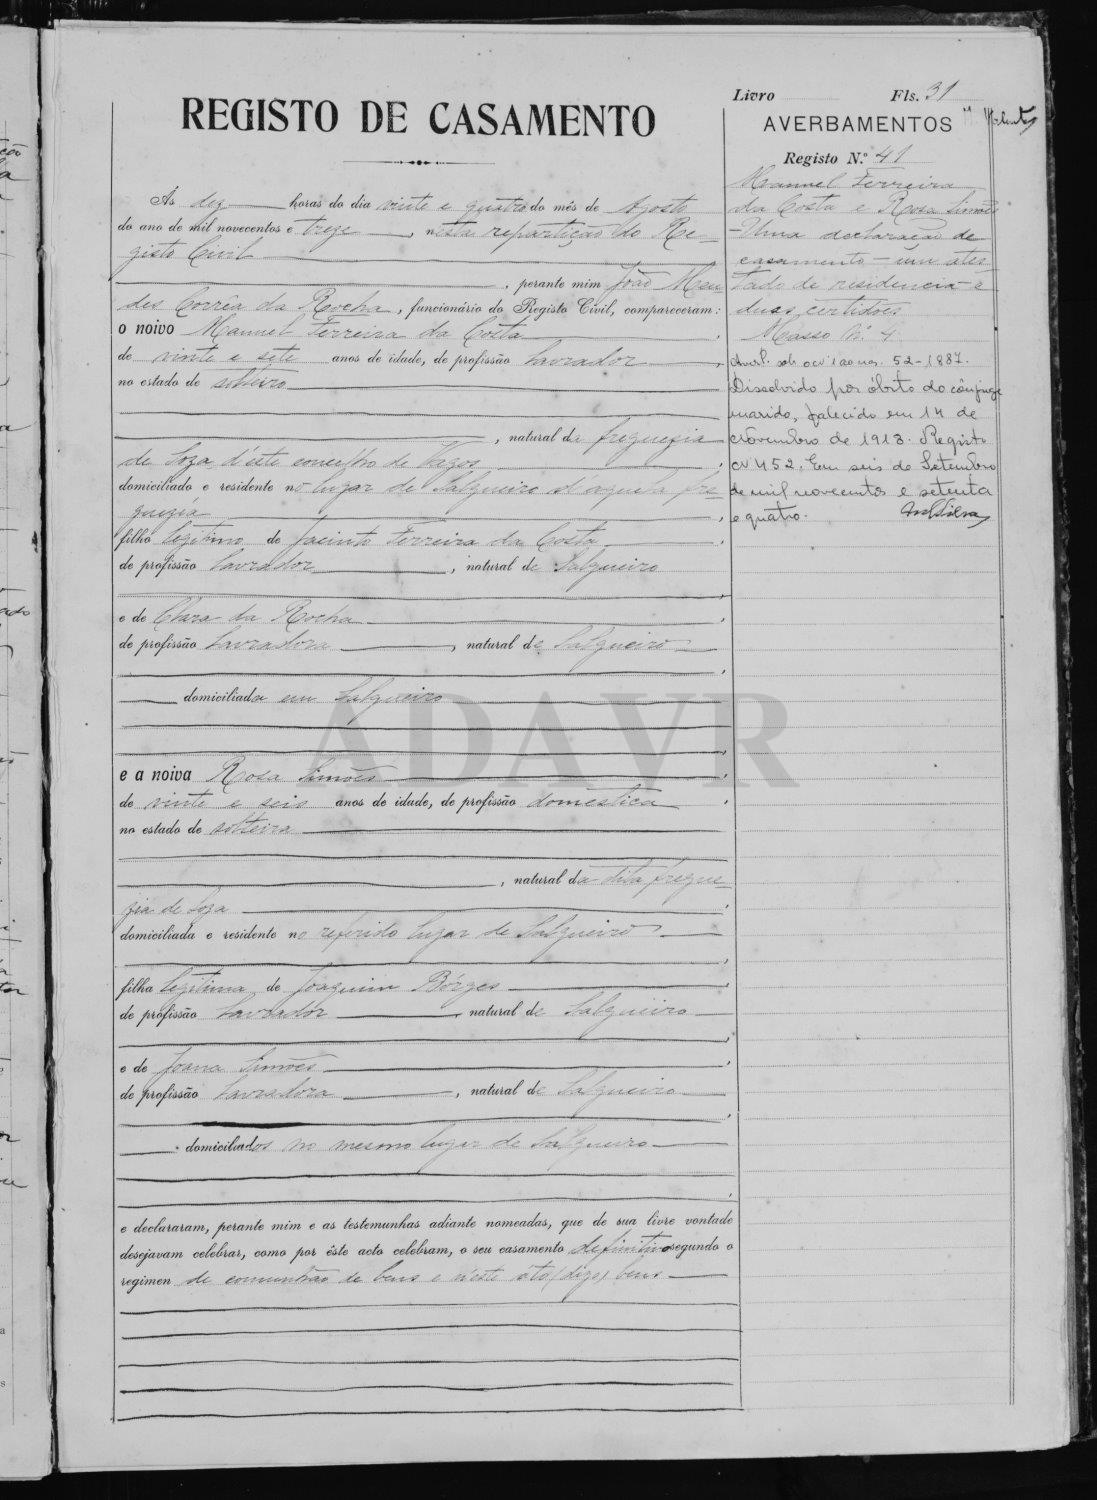 Livro Fls. 31
REGISTO DE CASAMENTO
AVERBAMENTOS
Registo N.º 41
Manuel Ferreira
da Costa e Rosa Simões
- Uma declaração de
casamento - um ates-
tado de residencia e
duas certidões
Masso N.º 4
52-1887.
Dissolvido por óbito do cônjuge
marido, falecido em 14 de
Novembro de 1913. Registo
Nº 452. Em seis de Setembro
de mil novecentos e setenta
e quatro.
Ás dez horas do dia vinte e quatro do mês de Agosto
do ano de mil novecentos e treze, nesta repartição do Re-
gisto Civil
, perante mim João Men-
des Corrêa da Rocha, funcionário do Registo Civil, compareceram:
o noivo Manuel Ferreira da Costa
de vinte e sete anos de idade, de profissão lavrador
no estado de solteiro
, natural da freguezia
de Soza d'éste concelho de Vagos
domiciliado e residente no lugar de Salgueiro d'aquela fre-
guezia
filho legitimo de Jacinto Ferreira da Costa
de profissão lavrador, natural de Salgueiro
e de Clara da Rocha
de profissão lavradora, natural de Salgueiro
domiciliada em Salgueiro
ADAVR
e a noiva Rosa Simões
de vinte e seis anos de idade, de profissão doméstica
no estado de solteira
, natural da dita fregue-
zia de Soza
domiciliada e residente no referido lugar de Salgueiro
filha legitima de Joaquim Bórges
de profissão lavrador, natural de Salgueiro
e de Joana Simões
de profissão lavradora, natural de Salgueiro
domiciliados no mesmo lugar de Salgueiro
e declararam, perante mim e as testemunhas adiante nomeadas, que de sua livre vontade
desejavam celebrar, como por êste acto celebram, o seu casamento definitivo segundo o
regimen de comunhão de bens e n'este áto (digo) bens